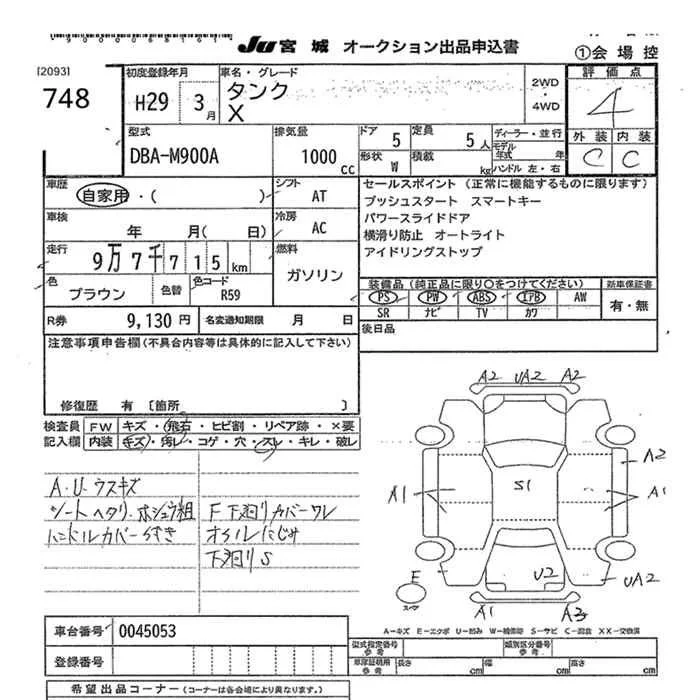 JU 宮城 オークション出品申込書
①会場控
[2093]
748
初度登録年月
H29 3月
車名・グレード
タンク
X
2WD
・
4WD
評価点
4
外装 内装
C C
型式
DBA-M900A
排気量
1000 CC
ドア 5
定員 5人
形状 W
積載 kg
ディーラー・並行
モデル年式 年
ハンドル 左・右
車歴
自家用・( )
シフト
AT
車検
年 月( 日)
冷房
AC
走行
9万7千715km
燃料
ガソリン
色
ブラウン
色替
色コード
R59
セールスポイント (正常に機能するものに限ります)
プッシュスタート スマートキー
パワースライドドア
横滑り防止 オートライト
アイドリングストップ
装備品(純正品に限り○をつけてください)
PS PW ABS エアB AW
SR ナビ TV カワ
新車保証書
有・無
R券 9,130円
名変通知期限 月 日
後日品
注意事項申告欄(不具合内容等は具体的に記入して下さい)
修復歴 有 〔箇所 〕
検査員
記入欄
FW キズ・飛石・ヒビ割・リペア跡・×要
内装 キズ・汚レ・コゲ・穴・スレ・キレ・破レ
A.U.ウスキズ
シートヘタリ.ホシュウ粗
ハンドルカバーつき
F下廻りカバーワレ
オイルにじみ
下廻りS
A2 UA2 A2
A2
A1
S1
A1
U2
UA2
E
スペア
A1
A3
A-キズ E-エクボ U-凹み W-補修跡 S-サビ C-腐食 XX-交換済
車台番号 0045053
登録番号
型式指定番号
参考
類別区分番号
参考
車庫証明用
参考
長さ cm
幅 cm
高さ cm
希望出品コーナー(コーナーは各会場により異なります。)